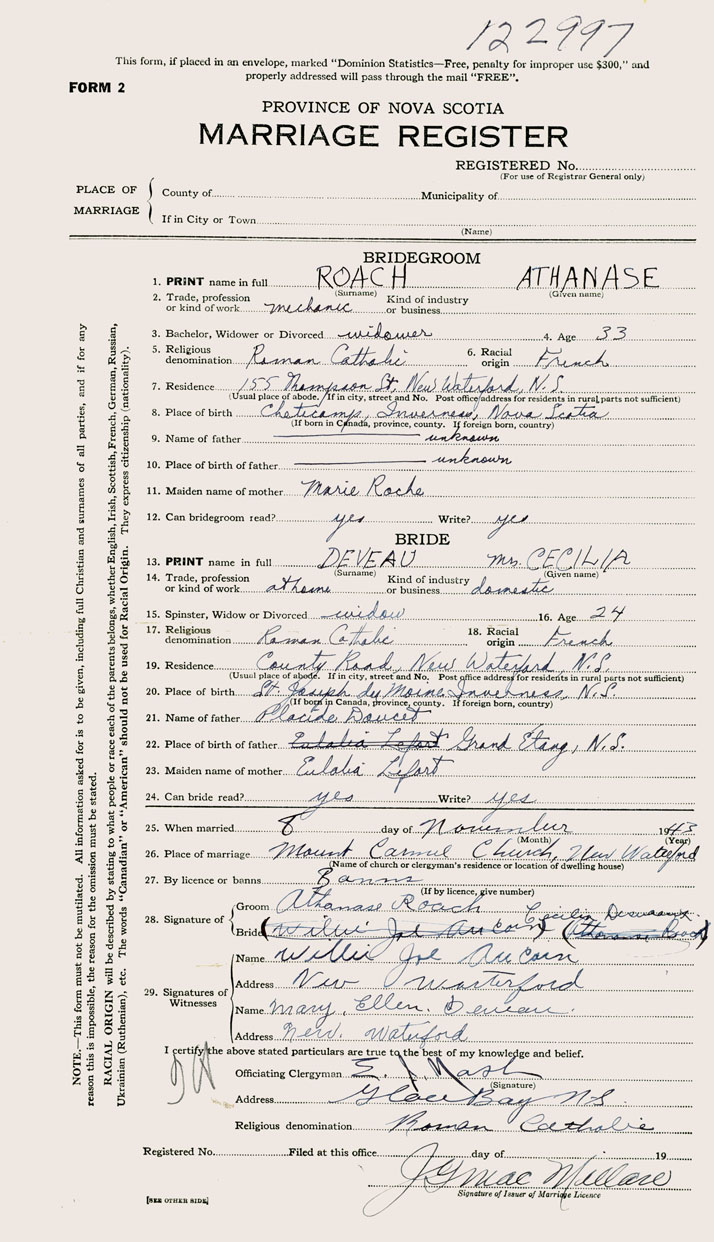 122997
This form, if placed in an envelope, marked "Dominion Statistics—Free, penalty for improper use $300," and
properly addressed will pass through the mail "FREE".
FORM 2
PROVINCE OF NOVA SCOTIA
MARRIAGE REGISTER
REGISTERED No.
(For use of Registrar General only)
PLACE OF MARRIAGE
County of Municipality of
If in City or Town
(Name)
BRIDEGROOM
1. PRINT name in full ROACH ATHANASE
(Surname) (Given name)
2. Trade, profession or kind of work mechanic Kind of industry or business
3. Bachelor, Widower or Divorced widower 4. Age 33
5. Religious denomination Roman Catholic 6. Racial origin French
7. Residence 155 Thompson St, New Waterford, N.S.
(Usual place of abode. If in city, street and No. Post office address for residents in rural parts not sufficient)
8. Place of birth Cheticamp, Inverness, Nova Scotia
(If born in Canada, province, county. If foreign born, country)
9. Name of father unknown
10. Place of birth of father unknown
11. Maiden name of mother Marie Roche
12. Can bridegroom read? yes Write? yes
BRIDE
13. PRINT name in full DEVEAU Mrs. CECILIA
(Surname) (Given name)
14. Trade, profession or kind of work at home Kind of industry or business domestic
15. Spinster, Widow or Divorced widow 16. Age 24
17. Religious denomination Roman Catholic 18. Racial origin French
19. Residence County Road, New Waterford, N.S.
(Usual place of abode. If in city, street and No. Post office address for residents in rural parts not sufficient)
20. Place of birth St. Joseph du Moine, Inverness, N.S.
(If born in Canada, province, county. If foreign born, country)
21. Name of father Placide Doucet
22. Place of birth of father Eulalia Lefort Grand Etang, N.S.
23. Maiden name of mother Eulalia Lefort
24. Can bride read? yes Write? yes
25. When married 8 day of November 1943
(Month) (Year)
26. Place of marriage Mount Carmel Church, New Waterford
(Name of church or clergyman's residence or location of dwelling house)
27. By licence or banns Banns
(If by licence, give number)
28. Signature of
Groom Athanase Roach Cecilia
Bride (Willie Joe AuCoin) (Athanase Roach)
29. Signatures of Witnesses
Name Willie Joe AuCoin
Address New Waterford
Name Mary Ellen Deveau
Address New Waterford
I certify the above stated particulars are true to the best of my knowledge and belief.
Officiating Clergyman
(Signature)
Address Glace Bay N.S.
Religious denomination Roman Catholic
Registered No. Filed at this office day of 19
J G Mac
Signature of Issuer of Marriage Licence
[SEE OTHER SIDE]
NOTE.—This form must not be mutilated. All information asked for is to be given, including full Christian and surnames of all parties, and if for any
reason this is impossible, the reason for the omission must be stated.
RACIAL ORIGIN will be described by stating to what people or race each of the parents belongs, whether English, Irish, Scottish, French, German, Russian,
Ukrainian (Ruthenian), etc. The words "Canadian" or "American" should not be used for Racial Origin. They express citizenship (nationality).